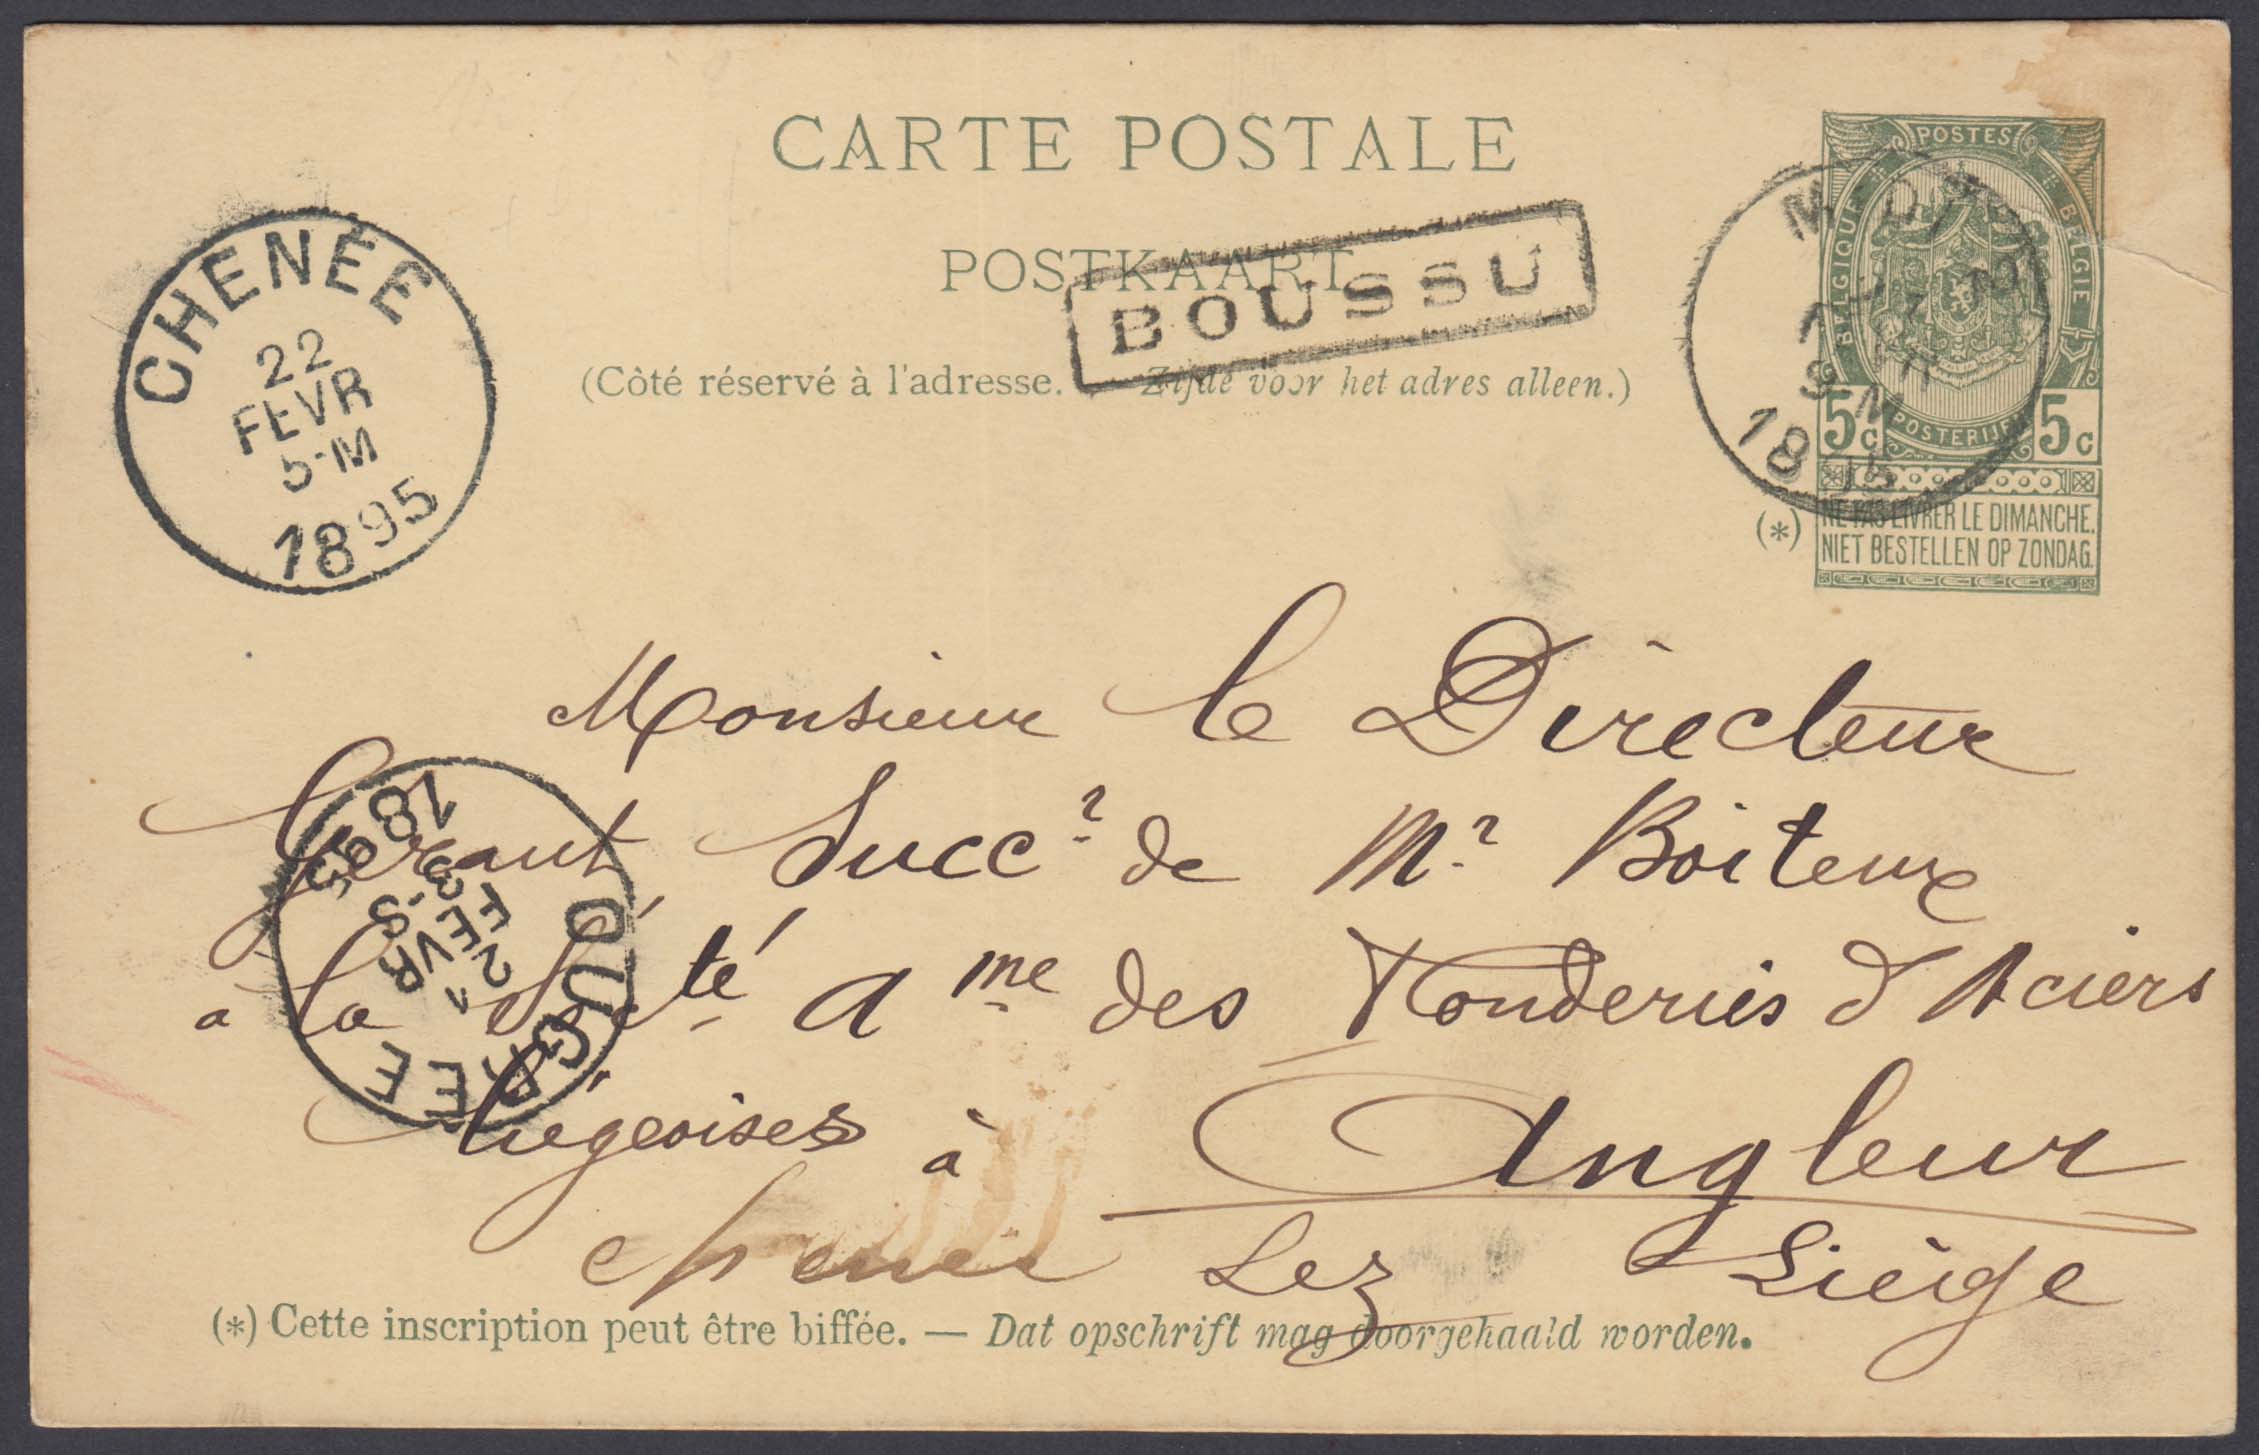 CARTE POSTALE
POSTKAART
BOUSSU
(Côté réservé à l'adresse. Zijde voor het adres alleen.)
CHENÉE
22
FEVR
5-M
1895
POSTES
BELGIQUE BELGIE
5c POSTERIJEN 5c
9-M
18 95
(*) NE PAS LIVRER LE DIMANCHE.
NIET BESTELLEN OP ZONDAG.
Monsieur le Directeur
Gérant, Succr de Mr Boiteux
à la Sté Ame des Fonderies d'Aciers
Liégeoises à Angleur
Chenée Lez Liège
OUGREE
21
FEVR
3-S
1895
(*) Cette inscription peut être biffée. — Dat opschrift mag doorgehaald worden.